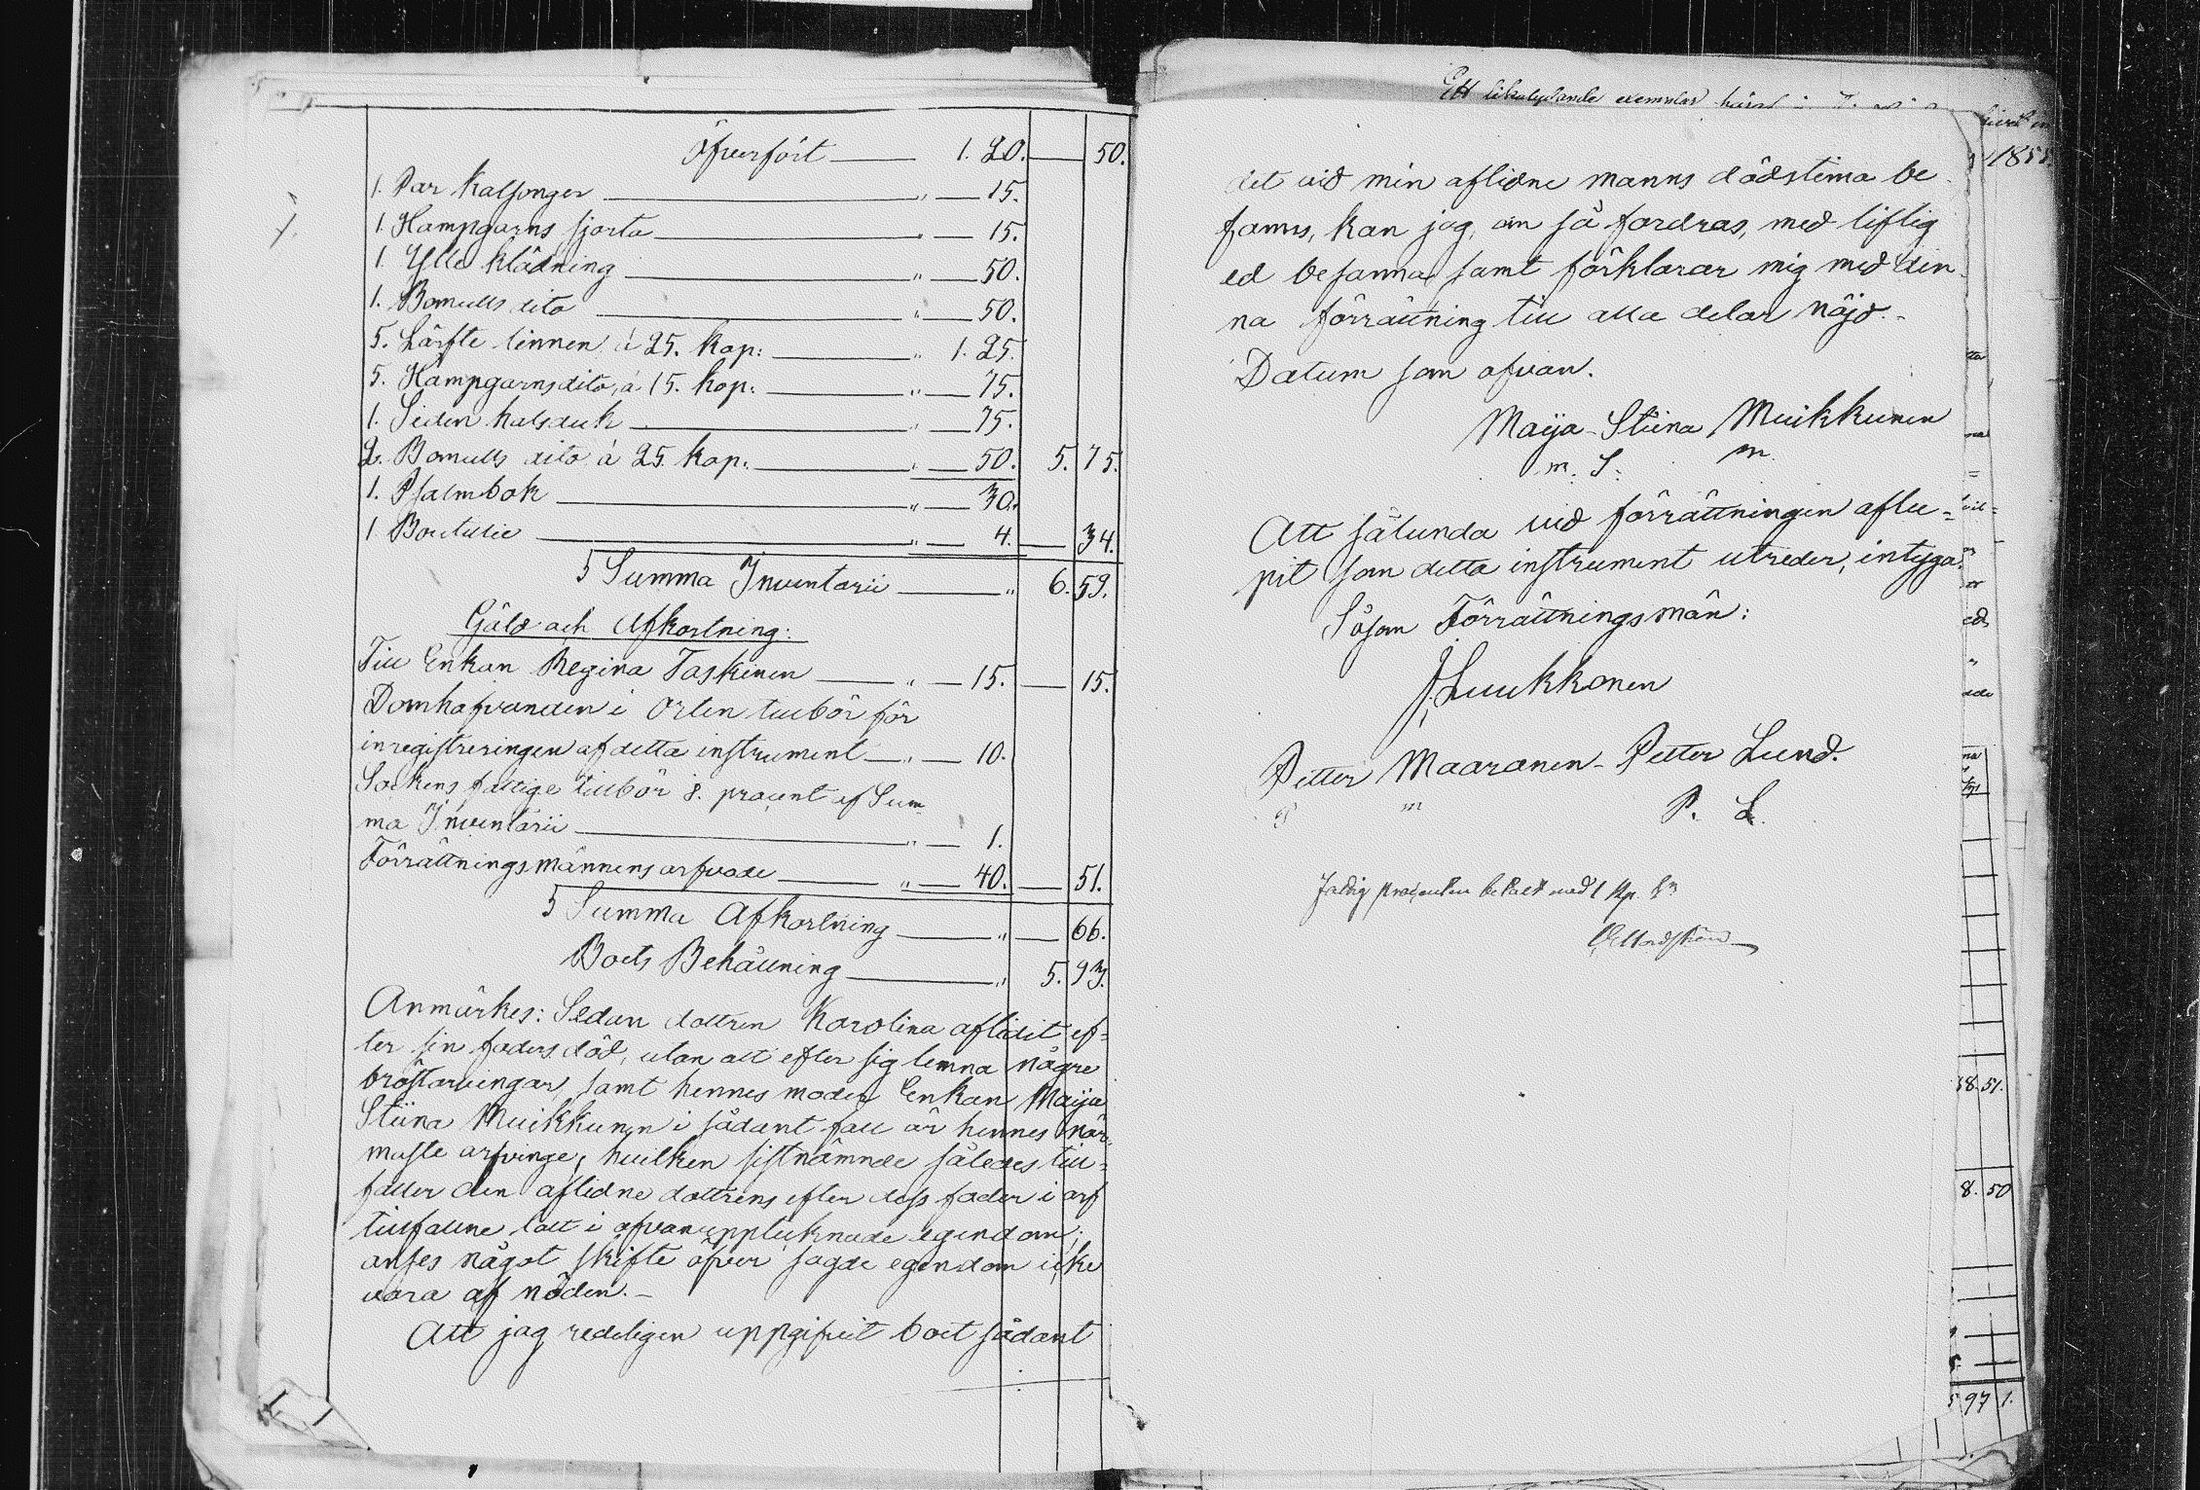 Öfverfört — 1. 20. — 50.
1. Par Kalsonger — " — 15.
1. Hampgarns sjorta — " — 15.
1. Ylle klädning — " — 50.
1. Bomulls dito — " — 50.
5. Lärfts linnen à 25. kop: — " 1. 25.
5. Hampgarns dito, à 15. kop: — " — 75.
1. Siden halsduk — " — 75.
2. Bomulls dito à 25. kop. — " — 50. 5. 75.
1. Psalmbok — " — 30.
1. Boutillie — " — 4. — 34.
Summa Inventarii — " 6. 59.
Gäld och Afkortning:
Till Enkan Regina Taskinen — " — 15. — 15.
Domhafvanden i Orten tillbör för
inregistreringen af detta instrument — " — 10.
Sockens fattige tillbör procent af Sum
ma Inventarii — " — 1.
Förrättningsmännens arfvode — " — 40. — 51.
Summa Afkortning — " — 66.
Boets Behållning — " 5. 93.
Anmärkes: Sedan dottren Karolina aflidit ef=
ter sin faders död, utan att efter sig lemna några
bröstarvingar, samt hennes moder Enkan Maija
Stiina Muikkunen i sådant fall är hennes när-
maste arfvinge, hvilken sistnämnde således till=
faller den aflidne dottrens efter dess fader i arf
tillfallne lått i ofvanupptecknade egendom;
anses något skifte öfver sagde egendom icke
vara af nöden. —
Att jag redeligen uppgifvit boet sådant
Ett likalydande exemplar häraf
1855
det vid min aflidne manns dödstima be
fanns, kan jag, om så fordras, med liflig
ed besanna, samt förklarar mig med den
na förrättning till alla delar nöjd. -
Datum som ofvan.
Maija-Stiina Muikkunen
m. S: m.
Att sålunda vid förrättningen aflu=
pit som detta instrument utreder, intyga.
Såsom Förrättningsmän:
J. Luukkonen
Petter Maaranen - Petter Lund.
P m P. L.
Fattig procenten betalt med 1 kp. Sr
38. 51.
8. 50
5 97 1.